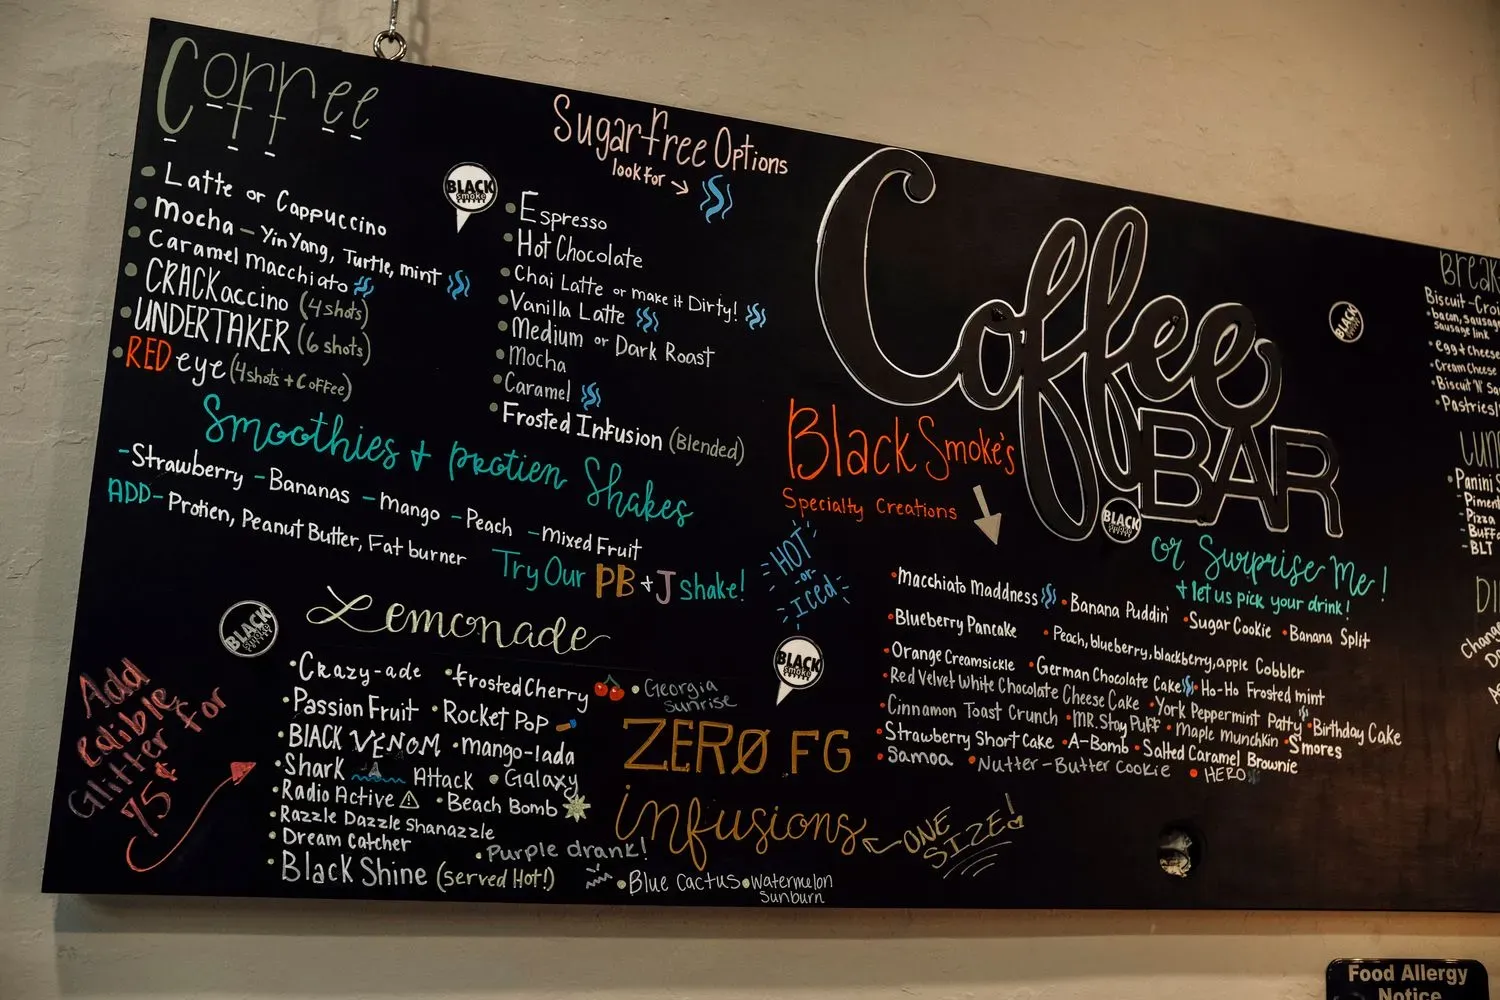 Coffee
• Latte or Cappuccino
• Mocha - YinYang, Turtle, mint
• Caramel Macchiato
• CRACKaccino (4 shots)
• UNDERTAKER (6 shots)
• RED eye (4 shots + Coffee)
Sugar free Options
look for →
BLACK
smoke
• Espresso
• Hot Chocolate
• Chai Latte or make it Dirty!
• Vanilla Latte
• Medium or Dark Roast
• Mocha
• Caramel
• Frosted Infusion (Blended)
Smoothies + protien Shakes
- Strawberry - Bananas - Mango - Peach - mixed Fruit
ADD - Protien, Peanut Butter, Fat burner
Try Our PB + J shake!
Lemonade
BLACK
• Crazy-ade • frosted Cherry • Georgia Sunrise
• Passion Fruit • Rocket Pop
• BlACK VENOM • mango-lada
• Shark Attack • Galaxy
• Radio Active • Beach Bomb
• Razzle Dazzle Shanazzle
• Dream Catcher • Purple drank!
• Black Shine (served Hot!) • Blue Cactus • Watermelon Sunburn
Add Edible Glitter for 75¢
ZERØ FG
infusions
← ONE SIZE!
Coffee
BAR
BLACK
BLACK
Black Smoke's
Specialty Creations
HOT
-or-
ICED
BLACK
smoke
or Surprise Me!
+ let us pick your drink!
• Macchiato Maddness • Banana Puddin' • Sugar Cookie • Banana Split
• Blueberry Pancake • Peach, blueberry, blackberry, apple Cobbler
• Orange Creamsickle • German Chocolate Cake • Ho-Ho Frosted mint
• Red Velvet White Chocolate Cheese Cake • York Peppermint Patty • Birthday Cake
• Cinnamon Toast Crunch • MR. Stay Puff • Maple munchkin • S'mores
• Strawberry Short Cake • A-Bomb • Salted Caramel Brownie
• Samoa • Nutter-Butter Cookie • HERO
Break
Biscuit - Croi
• bacon, sausag
Sausage link
• egg + cheese
• Cream Cheese
• Biscuit 'N' Sa
• Pastries/
Lun
• Panini S
- Pimen
- Pizza
- Buff
- BLT
DI
Chang
Food Allergy
Notice